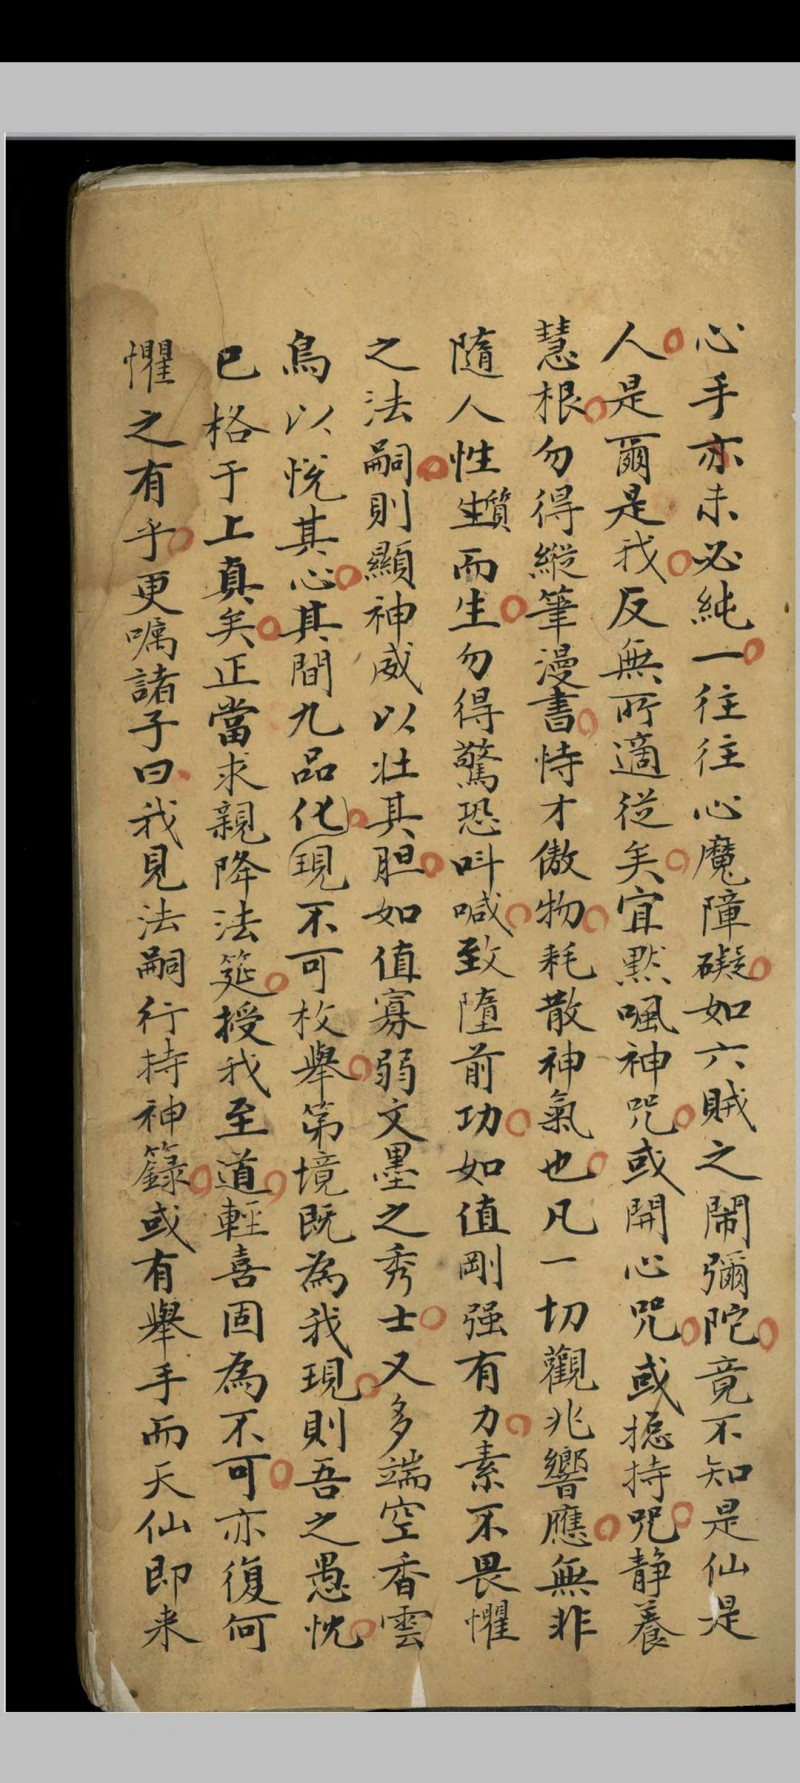 心手亦未必純一往往心魔障礙如六賊之鬧彌陀竟不知是仙是
人是爾是我反無所適從矣宜默諷神咒或開心咒或摠持咒靜養
慧根勿得縱筆漫書恃才傲物耗散神氣也凡一切觀兆響應無非
隨人性質而生勿得驚恐呌喊致墮前功如值剛强有力素不畏懼
之法嗣則顯神威以壯其胆如值寡弱文墨之秀士又多端空香雲
鳥以悅其心其間九品化現不可枚舉第境既為我現則吾之愚忱
已格于上真矣正當求親降法筵授我至道輕喜固為不可亦復何
懼之有乎更囑諸子曰我見法嗣行持神籙或有舉手而天仙即来